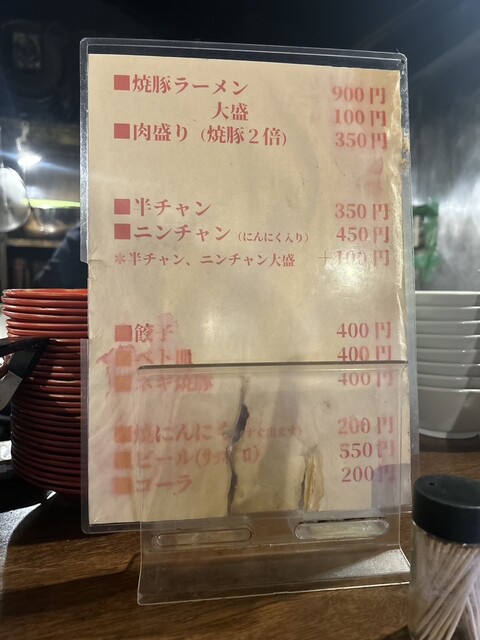 ■焼豚ラーメン 900円
大盛 100円
■肉盛り（焼豚２倍） 350円
■半チャン 350円
■ニンチャン（にんにく入り） 450円
＊半チャン、ニンチャン大盛 ＋100円
■餃子 400円
■ベト皿 400円
■ネギ焼豚 400円
■焼にんにく 200円
■ビール 550円
■コーラ 200円